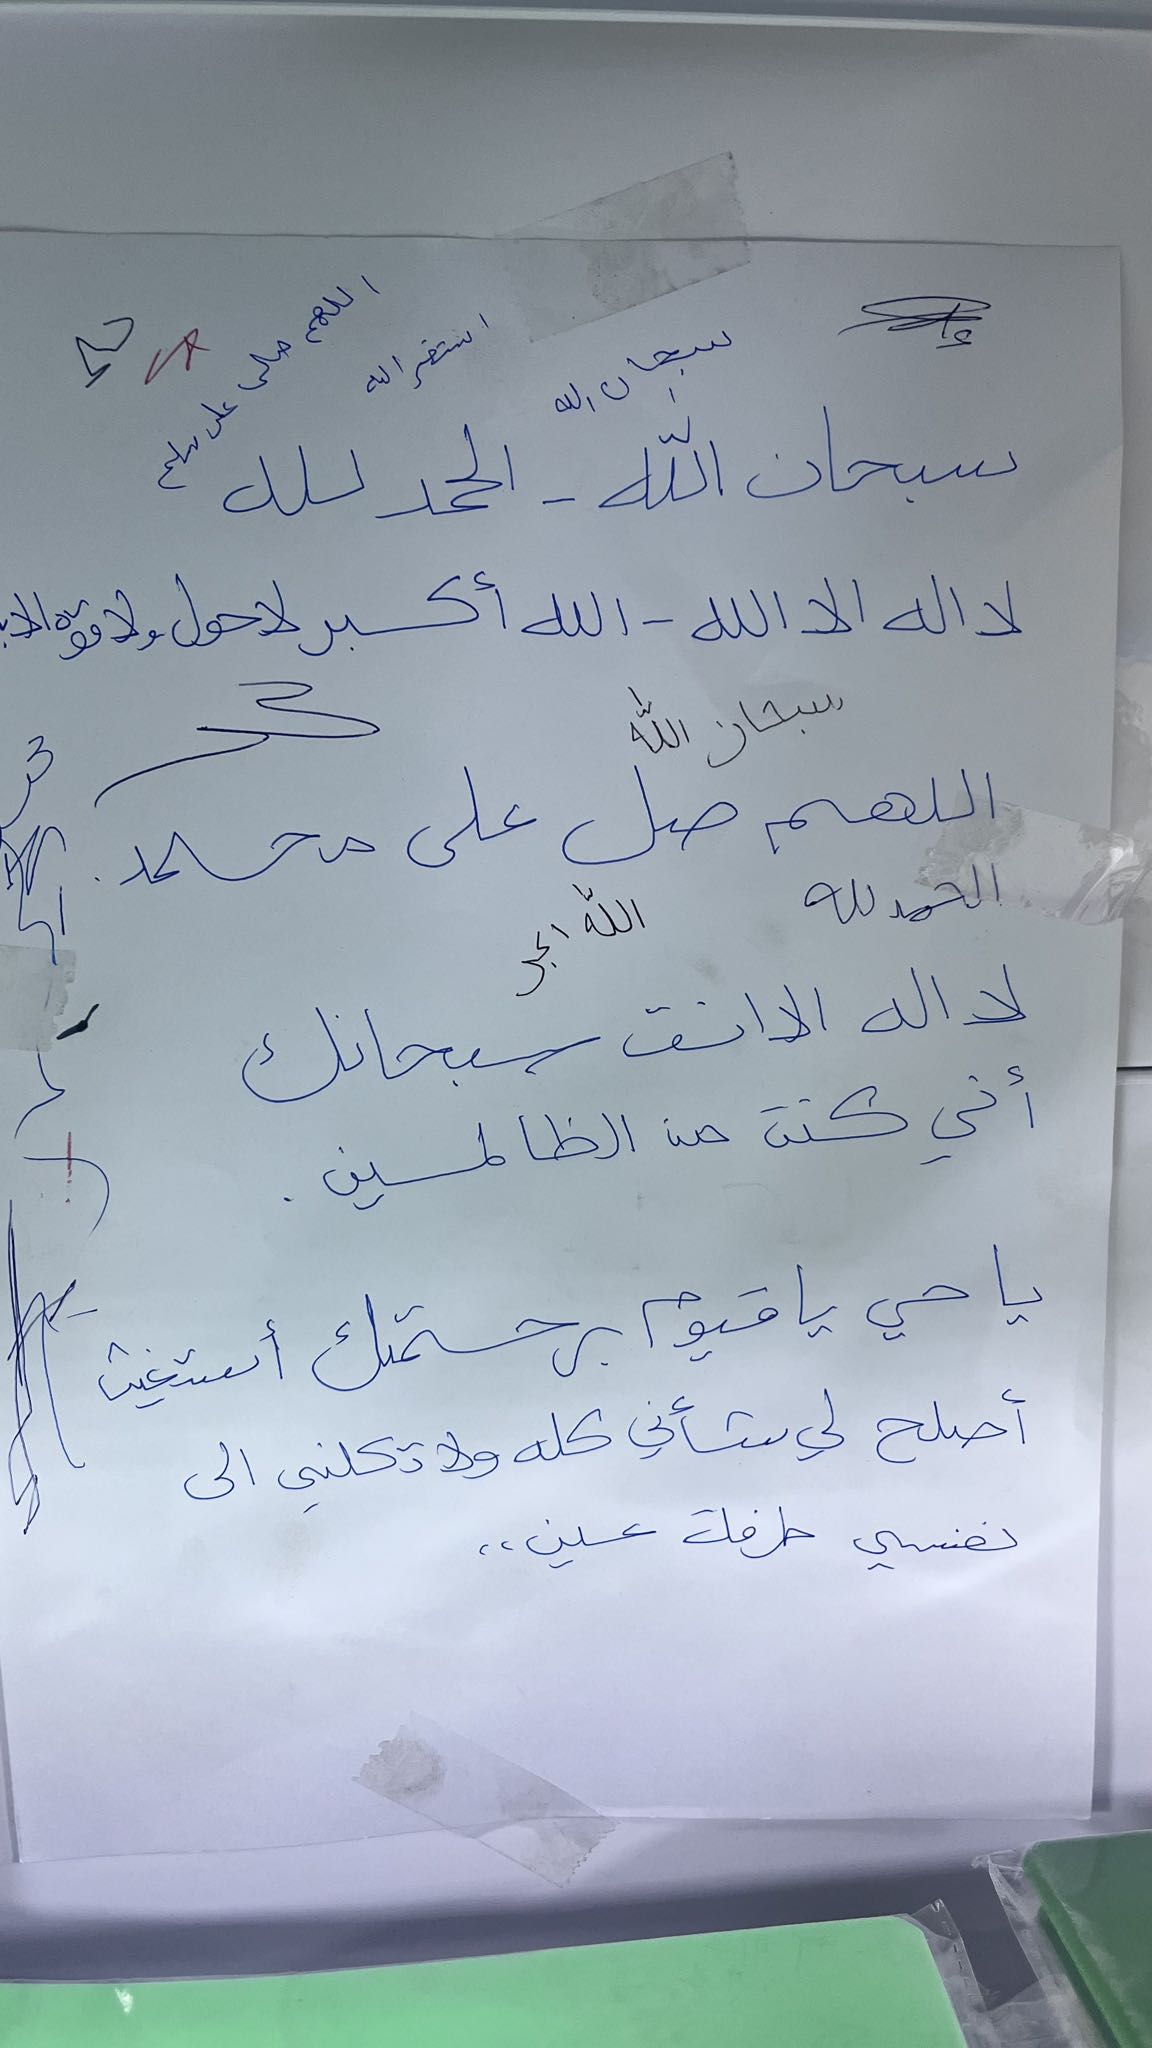 اللهم صلى على سلم
استغفر الله
سبحان الله
سبحان اللّه - الحمد لله
لا اله الا الله - الله أكبر لا حول ولا قوة الا
سبحان اللّه
اللهم صل على محمد .
الحمد لله
اللّه اكبر
لا اله الا انت سبحانك
أني كنت من الظالمين .
يا حي يا قيوم برحمتك أستغيث
أصلح لي شأني كله ولا تكلني الى
نفسي طرفة عين ،،